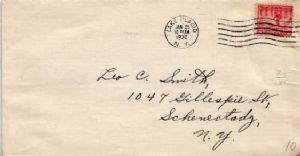 LAKE PLACID
JAN 2
1932
N.Y.
Leo C. Smith,
1047 Gillespie St,
Schenectady,
N.Y.
10